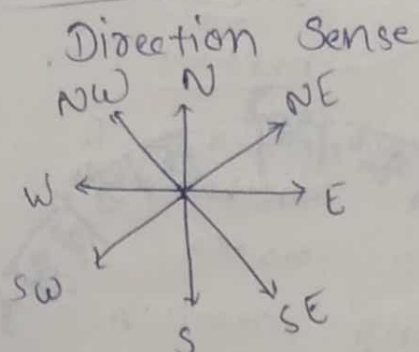 Direction Sense
NW N NE
W E
SW S SE